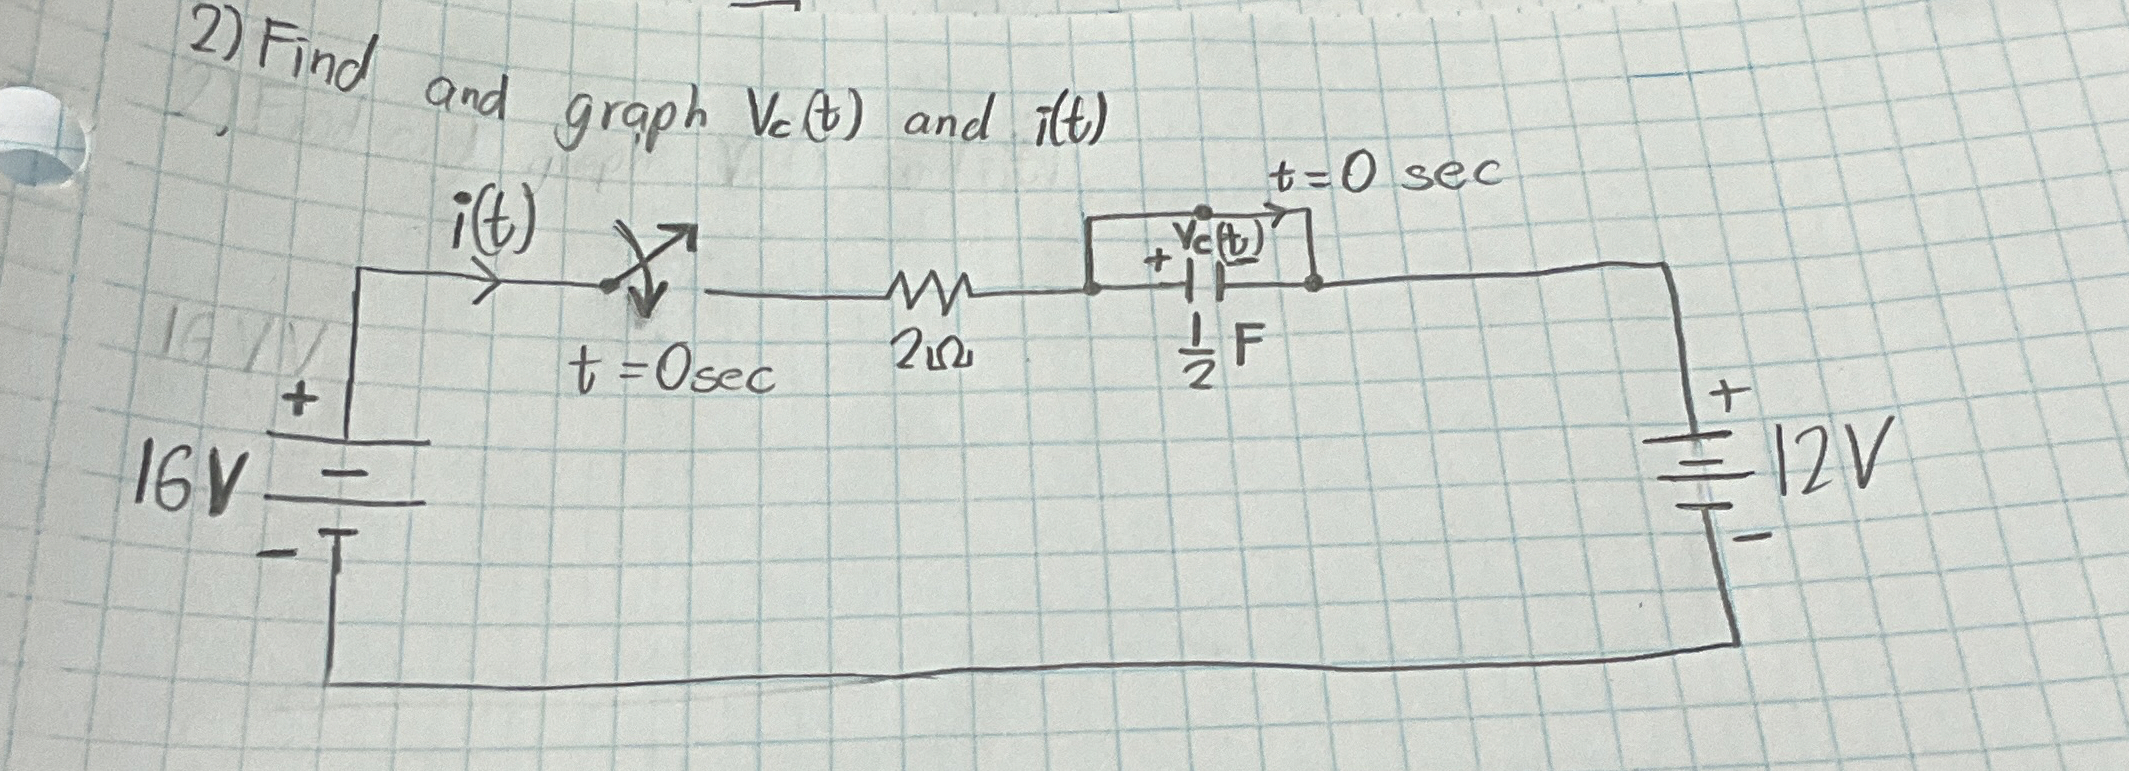 2) Find and graph Vc(t) and i(t)
t=0 sec
i(t)
+ Vc(t) -
t=0sec
2Ω
1/2 F
+
16V
-
+
12V
-